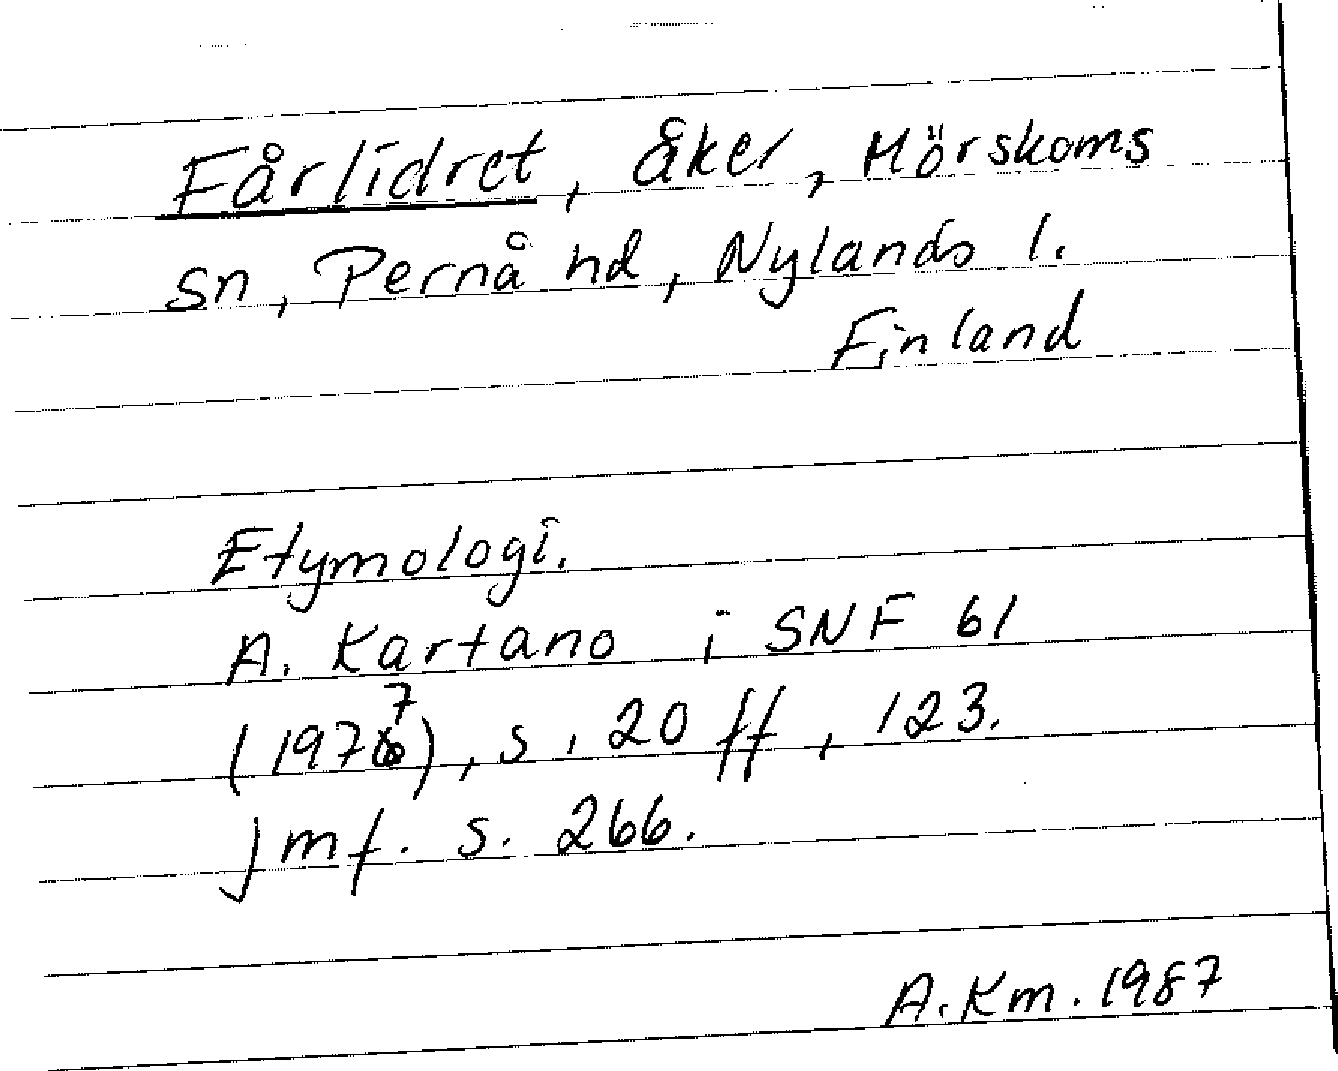 Fårlidret, åker, Mörskoms
sn, Pernå hd, Nylands l.
Finland
Etymologi.
A. Kartano i SNF 61
(1977), s. 20 ff, 123.
Jmf. s. 266.
A. Km. 1987